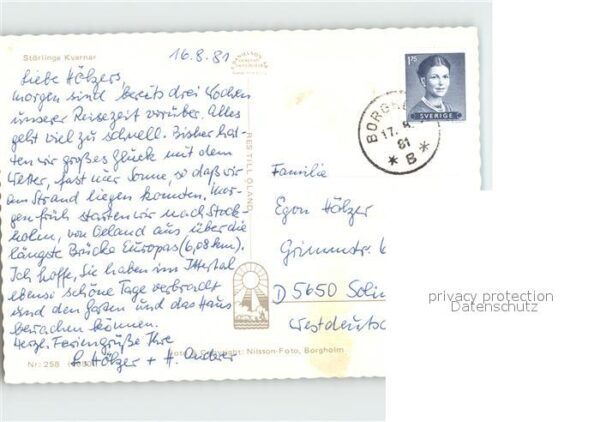 Störlinge Kvarnar
16.8.81
Liebe Hölzers,
morgen sind bereits drei Wochen
unserer Reisezeit vorüber. Alles
geht viel zu schnell. Bisher hat-
ten wir großes Glück mit dem
Wetter, fast nur Sonne, so daß wir
am Strand liegen konnten. Mor-
gen früh starten wir nach Stock-
holm, von Oeland aus über die
längste Brücke Europas (6,08 km).
Ich hoffe, Sie haben im Ittertal
ebenso schöne Tage verbracht
und den Garten und das Haus
bewachen können.
Herzl. Feriengrüße Ihre
Hölzer + H.
Nr. 258
RES TILL ÖLAND
Foto & Copyright: Nilsson-Foto, Borgholm
1.75
SVERIGE
BORGH
17. 8.
81
* B *
Familie
Egon Hölzer
Grimmstr.
D 5650 Solin
Westdeutsc
privacy protection
Datenschutz